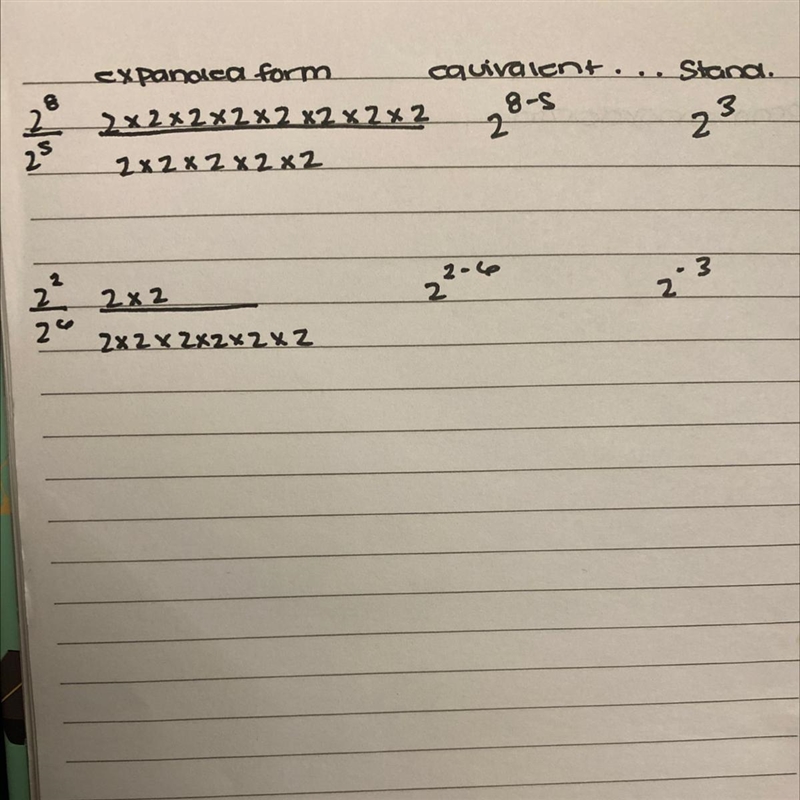 expanded form equivalent . . . Stand.
2^8/2^5 2×2×2×2×2×2×2×2/2×2×2×2×2 2^8-5 2^3
2^2/2^6 2×2/2×2×2×2×2×2 2^2-6 2^-3